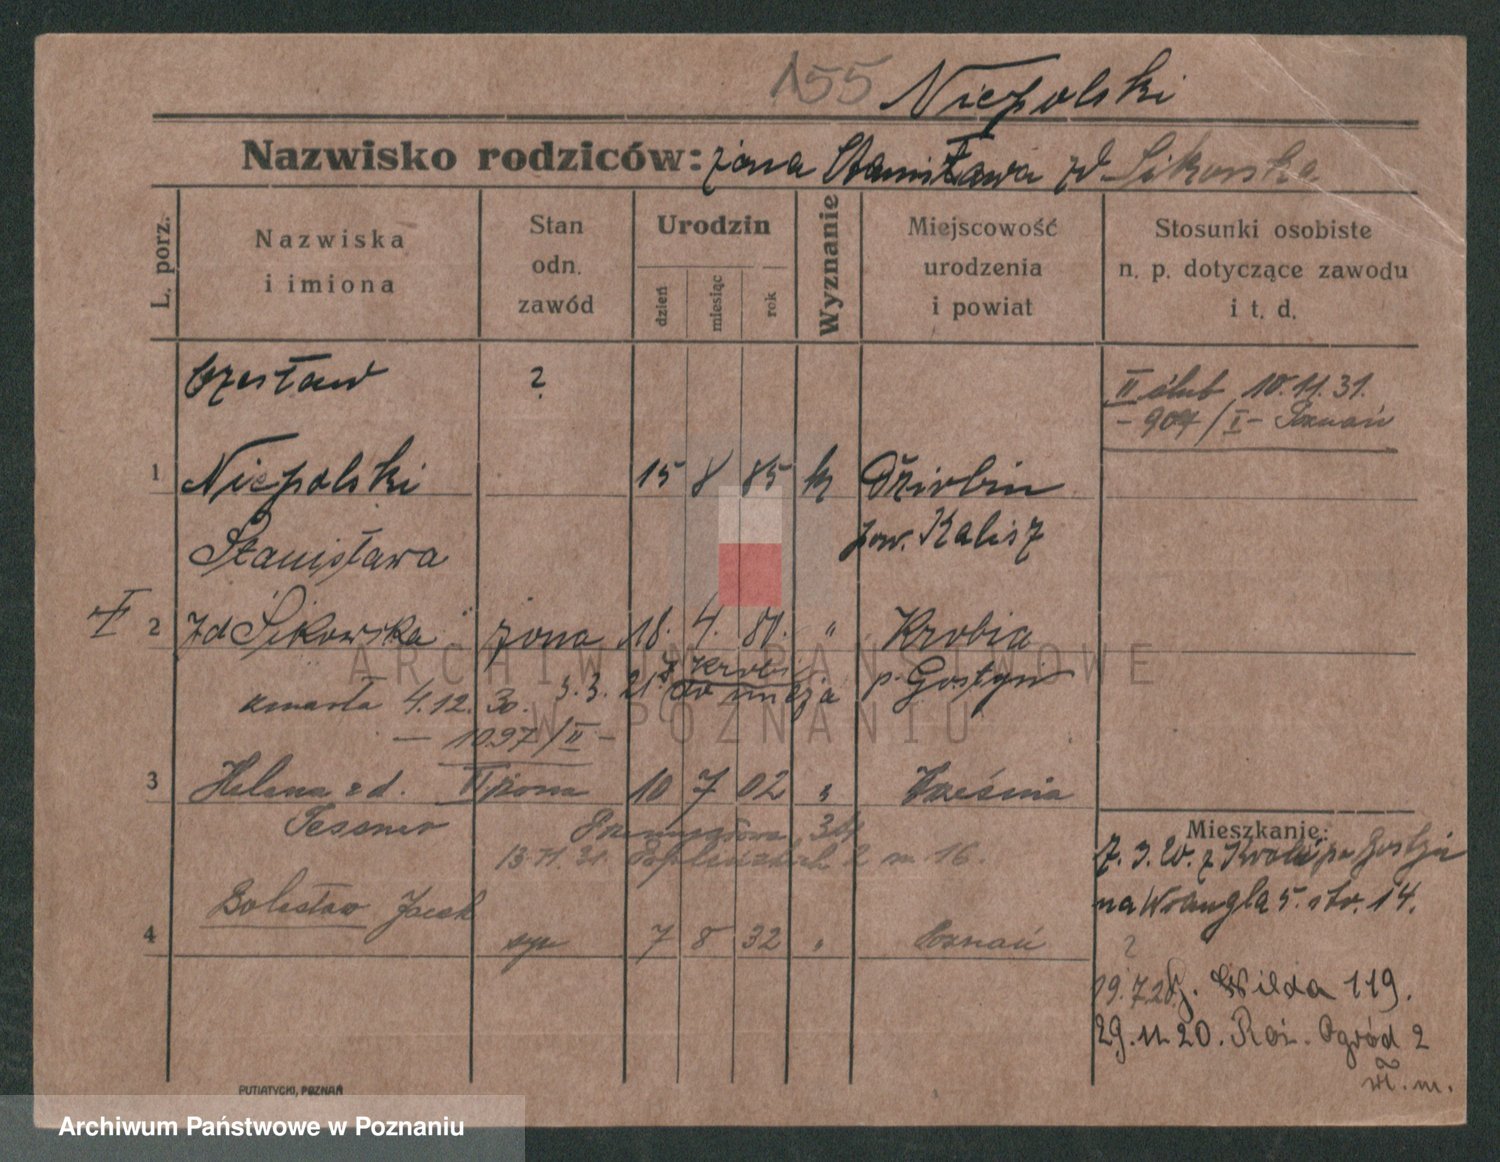 155 Niepolski
Nazwisko rodziców: żona Stanisława zd Sikorska
L. porz.
Nazwiska
i imiona
Stan
odn.
zawód
Urodzin
dzień
miesiąc
rok
Wyznanie
Miejscowość
urodzenia
i powiat
Stosunki osobiste
n. p. dotyczące zawodu
i t. d.
Czesław ?
II ślub 10.11.31.
- 904/I - Poznań
1 Niepolski 15 8 85 k
pow. Kalisz
Stanisława
2 zd Sikowska żona 18. 4. 81. " Krobia
p. Gostyń
3.3.21. z Krobi
do męża
zmarła 4.12.30.
- 1097/II -
3 Helena zd. II żona 10 7 02 " Września
Tessner
Przemysłowa 34
13.11.31. 2 m. 16.
Bolesław Jacek
4 syn 7 8 32 " Poznań
Mieszkanie:
7.3.20. z Krobi p. Gostyń
na Wrangla 5. str. 14.
?
19.7.20 G. Wilda 119.
29.11.20. Roz. Ogród 2
m.
PUTIATYCKI, POZNAŃ
ARCHIWUM PAŃSTWOWE
W POZNANIU
Archiwum Państwowe w Poznaniu